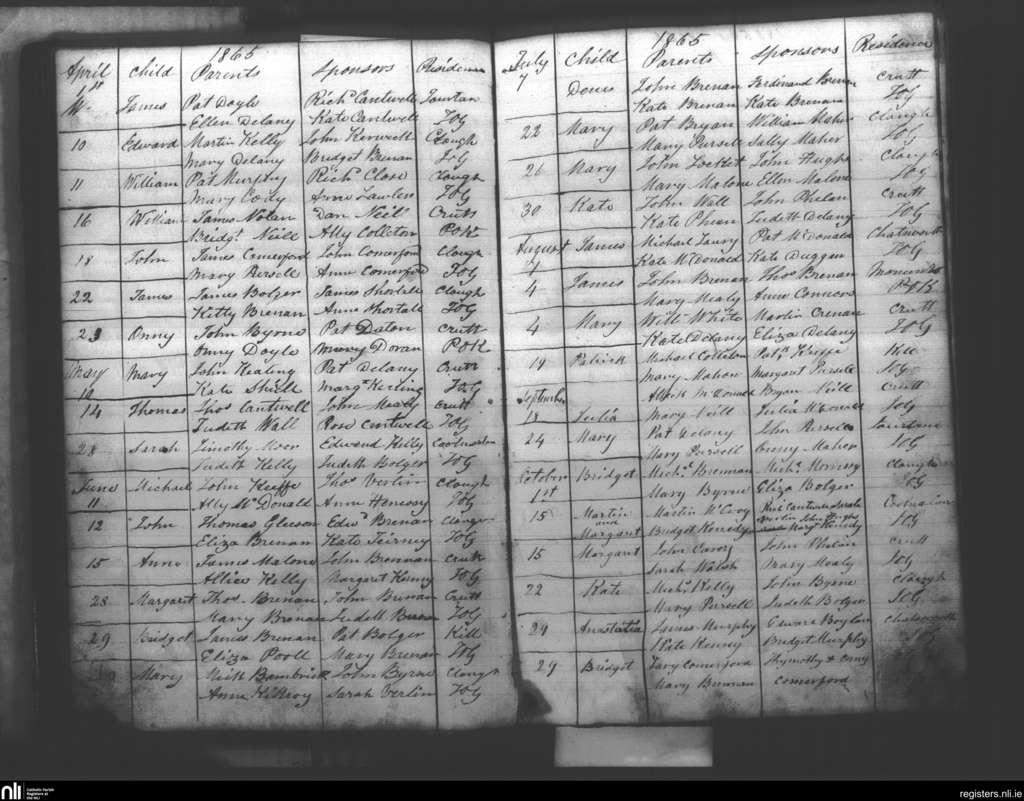 1865
April Child Parents Sponsors Residence
1st James Pat Doyle Richd Cantwell
Ellen Delany Kate Cantwell JOG
10 Edward Martin Kelly John Clough
Mary Delany Bridget Brenan JOG
11 William Pat Murphy Richd Close Clough
Mary Cody Anne Lawless JOG
16 William James Nolan Dan Neil Crutt
Bridgt Neill Ally Colleton POK
18 John James Comerford John Comerford Clough
Mary Pursell Anne Comerford JOG
22 James James Bolger James Shortall Clough
Kitty Brenan Anne Shortall JOG
23 Onny John Byrne Pat Daton Crutt
Onny Doyle Mary Doran POK
May Mary John Healing Pat Delany Crutt
10 Kate Margt Kerling JOG
14 Thomas Thos Cantwell John Mealy Crutt
Judith Wall Rose Cantwell JOG
28 Sarah Timothy Moor Edward Kelly
Judith Kelly Judith Bolger JOG
June Michael John Keeffe Thos Verlin Clough
11 Ally McDonald Anne JOG
12 John Thomas Gleeson Edwd Brenan Clough
Eliza Brenan Kate Teirney JOG
15 Anne James Malone John Brennan Crutt
Allice Kelly Margaret Kenny JOG
28 Margaret Thos Brenan John Brenan Crutt
Mary Brenan Judith Brenan JOG
29 Bridget James Brenan Pat Bolger Kill
Eliza Pooll Mary Brenan JOG
Mary Mick John Byrne Clough
Anne Kilkroy Sarah Verlin JOG
1865
July Child Parents Sponsors Residence
7 John Brenan Ferdinand Brenan Crutt
Kate Brenan Kate Brenan JOG
22 Mary Pat Bryan William Maher Clough
Mary Pursell Sally Maher JOG
26 Mary John Locket John Hughs Clough
Mary Malone Ellen Malone JOG
30 Kate John Wall John Phelan Crutt
Kate Phelan Judith Delany JOG
August James Michael Pat McDonald Chatsworth
Kate McDonald Kate Duggan JOG
4 James John Brenan Thos Brenan
Mary Mealy Anne Connors POK
4 Mary Will White Martin Crenan Crutt
Kate Delany Eliza Delany JOG
19 Patrick Michael Colleton Patk Keeffe Kill
Mary Mahon Margaret Pursell JOG
September McDonald Bryan Neill Crutt
18 Julia Mary Neill Julia McDonald JOG
24 Mary Pat Delany John Pursell
Mary Pursell Onny Maher JOG
October Bridget Michl Brennan Michl Clough
1st Mary Byrne Eliza Bolger JOG
15 Martin Martin McEvoy
and
Margaret Bridget Kenedy Mary Kenedy JOG
15 Margaret John John Phelan Crutt
Sarah Walsh Mary Mealy JOG
22 Kate Michl Kelly John Byrne Clough
Mary Pursell Judith Bolger JOG
29 Anastatia James Murphy Edward Boylan Chatsworth
Kate Kenny Bridget Murphy
29 Bridget Comerford Thymothy & Onny
Mary Brennan Comerford
nli Catholic Parish Registers at the NLI
registers.nli.ie